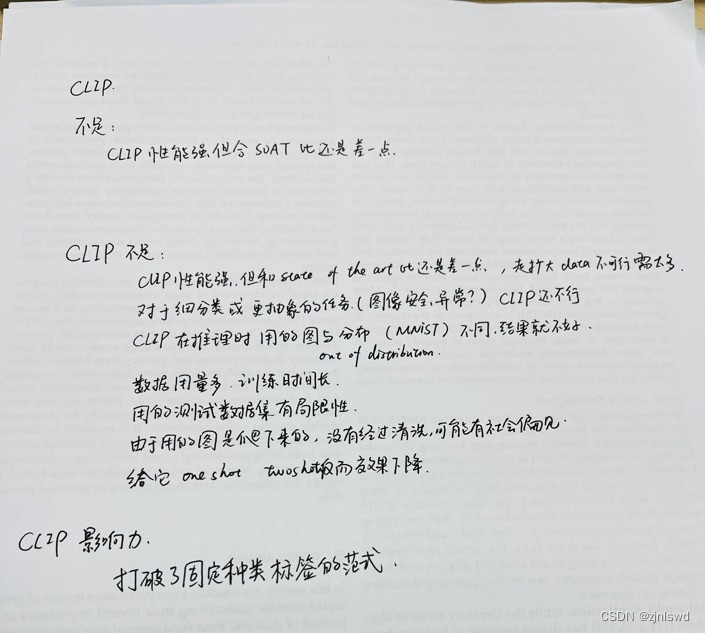 CLIP.
不足：
CLIP性能强,但合SOAT比还是差一点.
CLIP 不足：
CLIP性能强,但和state of the art比还是差一点，走扩大data不可行需太多.
对于细分类或更抽象的任务(图像安全,异常?) CLIP还不行
CLIP在推理时用的图与分布 (MNIST) 不同.结果就不好.
out of distribution.
数据用量多.训练时间长.
用的测试数据集有局限性.
由于用的图是爬下来的,没有经过清洗,可能有社会偏见.
给它 one shot twoshot反而效果下降.
CLIP 影响力.
打破了固定种类标签的范式.
CSDN @zjnlswd